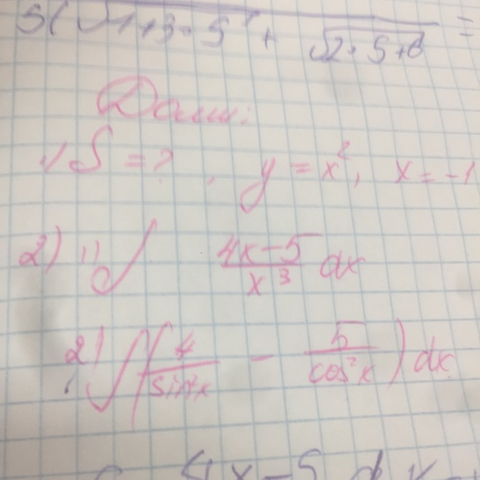 5(√1+3·5 + √2+5+6 =
Дом:
1) S = ? , y = x², x = -1
2) 1) ∫ 4x-5/x³ dx
2) ∫(4/sin²x - 5/cos²x) dx
4x-5 dx